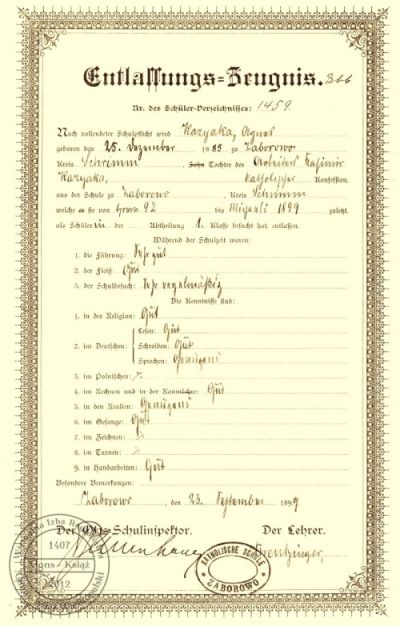 Entlassungs-Zeugnis. 366
Nr. des Schüler-Verzeichnisses: 1459
Nach vollendeter Schulpflicht wird Kazyaka, Agnes
geboren den 25. Dezember 1885 zu Zaborowo
Kreis Schrimm, Sohn Tochter des Arbeiters Kasimir
Kazyaka, katholischer Konfession,
aus der Schule zu Zaborowo Kreis Schrimm
welche es sie von 92 bis Michaeli 1899 zuletzt
als Schülerin der Abtheilung 1. Klasse besucht hat, entlassen.
Während der Schulzeit waren:
1. die Führung: Sehr gut
2. der Fleiß: Gut
3. der Schulbesuch: Sehr regelmäßig
Die Kenntnisse sind:
1. in der Religion: Gut
2. im Deutschen: { Lesen: Gut
Schreiben: Gut
Sprechen: Genügend
3. im Polnischen: ٪
4. im Rechnen und in der Raumlehre: Gut
5. in den Realien: Genügend
6. im Gesange: Gut
7. im Zeichnen: ٪
8. im Turnen: ٪
9. in Handarbeiten: Gut
Besondere Bemerkungen:
Zaborowo, den 23. September 1899
Der Schulinspektor. Der Lehrer.
Kreutzinger,
KATHOLISCHE SCHULE
ZABOROWO
1407
Gons - Książ
2012